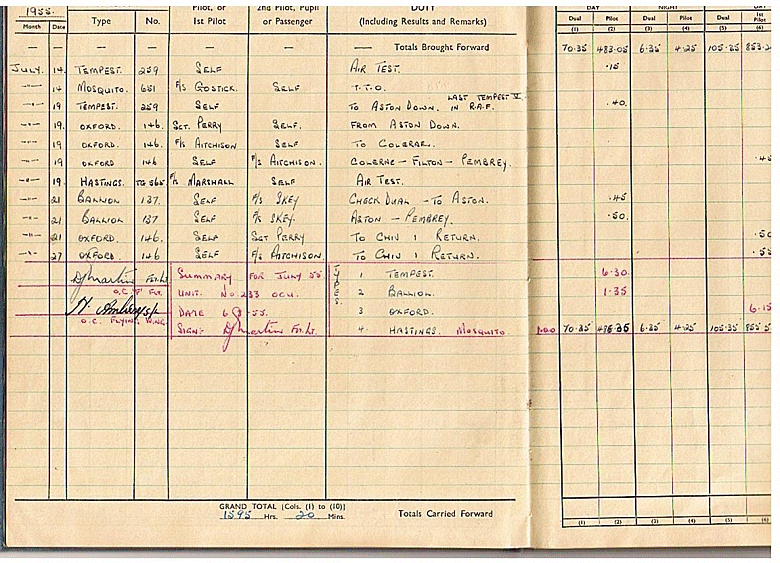 1955. PILOT, OR 2ND PILOT, PUPIL DUTY DAY NIGHT
Month Date Type No. 1st Pilot or Passenger (Including Results and Remarks) Dual Pilot Dual Pilot Dual 1st Pilot
(1) (2) (3) (4) (5) (6)
— — — — — — —— Totals Brought Forward 70.35 483.05 6.35 4.25 105.35 853.2
JULY. 14. TEMPEST. 259 SELF AIR TEST. .15
—"— 14 MOSQUITO. 651 F/S GOSTICK. SELF T.T.O.
—"— 19 TEMPEST. 259 SELF TO ASTON DOWN. LAST TEMPEST V. IN R.A.F. .40.
—"— 19. OXFORD. 146. SGT. PERRY SELF. FROM ASTON DOWN.
—"— 19. OXFORD. 146. F/S AITCHISON SELF TO COLERNE.
—"— 19 OXFORD 146 SELF F/S AITCHISON. COLERNE – FILTON – PEMBREY. .4
—"— 19. HASTINGS. TG 565. F/S MARSHALL SELF AIR TEST.
—"— 21 BALLIOL 137. SELF F/S SKEY CHECK DUAL – TO ASTON. .45
—"— 21 BALLIOL 137 SELF F/S SKEY. ASTON – PEMBREY. .50.
—"— 21 OXFORD. 146. SELF SGT PERRY TO CHIV & RETURN. .50
—"— 27 OXFORD. 146 SELF F/S AITCHISON. TO CHIV & RETURN. .55
DJ Martin Flt.Lt. SUMMARY FOR JULY 55 TYPES 1 TEMPEST. 6.30.
O.C. 'F' FLT. UNIT. NO. 233 OCU. 2 BALLIOL. 1.35
DATE 6 8 55. 3 OXFORD. 6.15
O.C. FLYING WING. SIGN: DJ Martin Flt.Lt. 4. HASTINGS. MOSQUITO. 1.00 70.35 485.35 6.35 4.25 105.35 855.5
GRAND TOTAL [Cols. (1) to (10)]
1595 Hrs. 20 Mins. Totals Carried Forward
(1) (2) (3) (4) (5) (6)